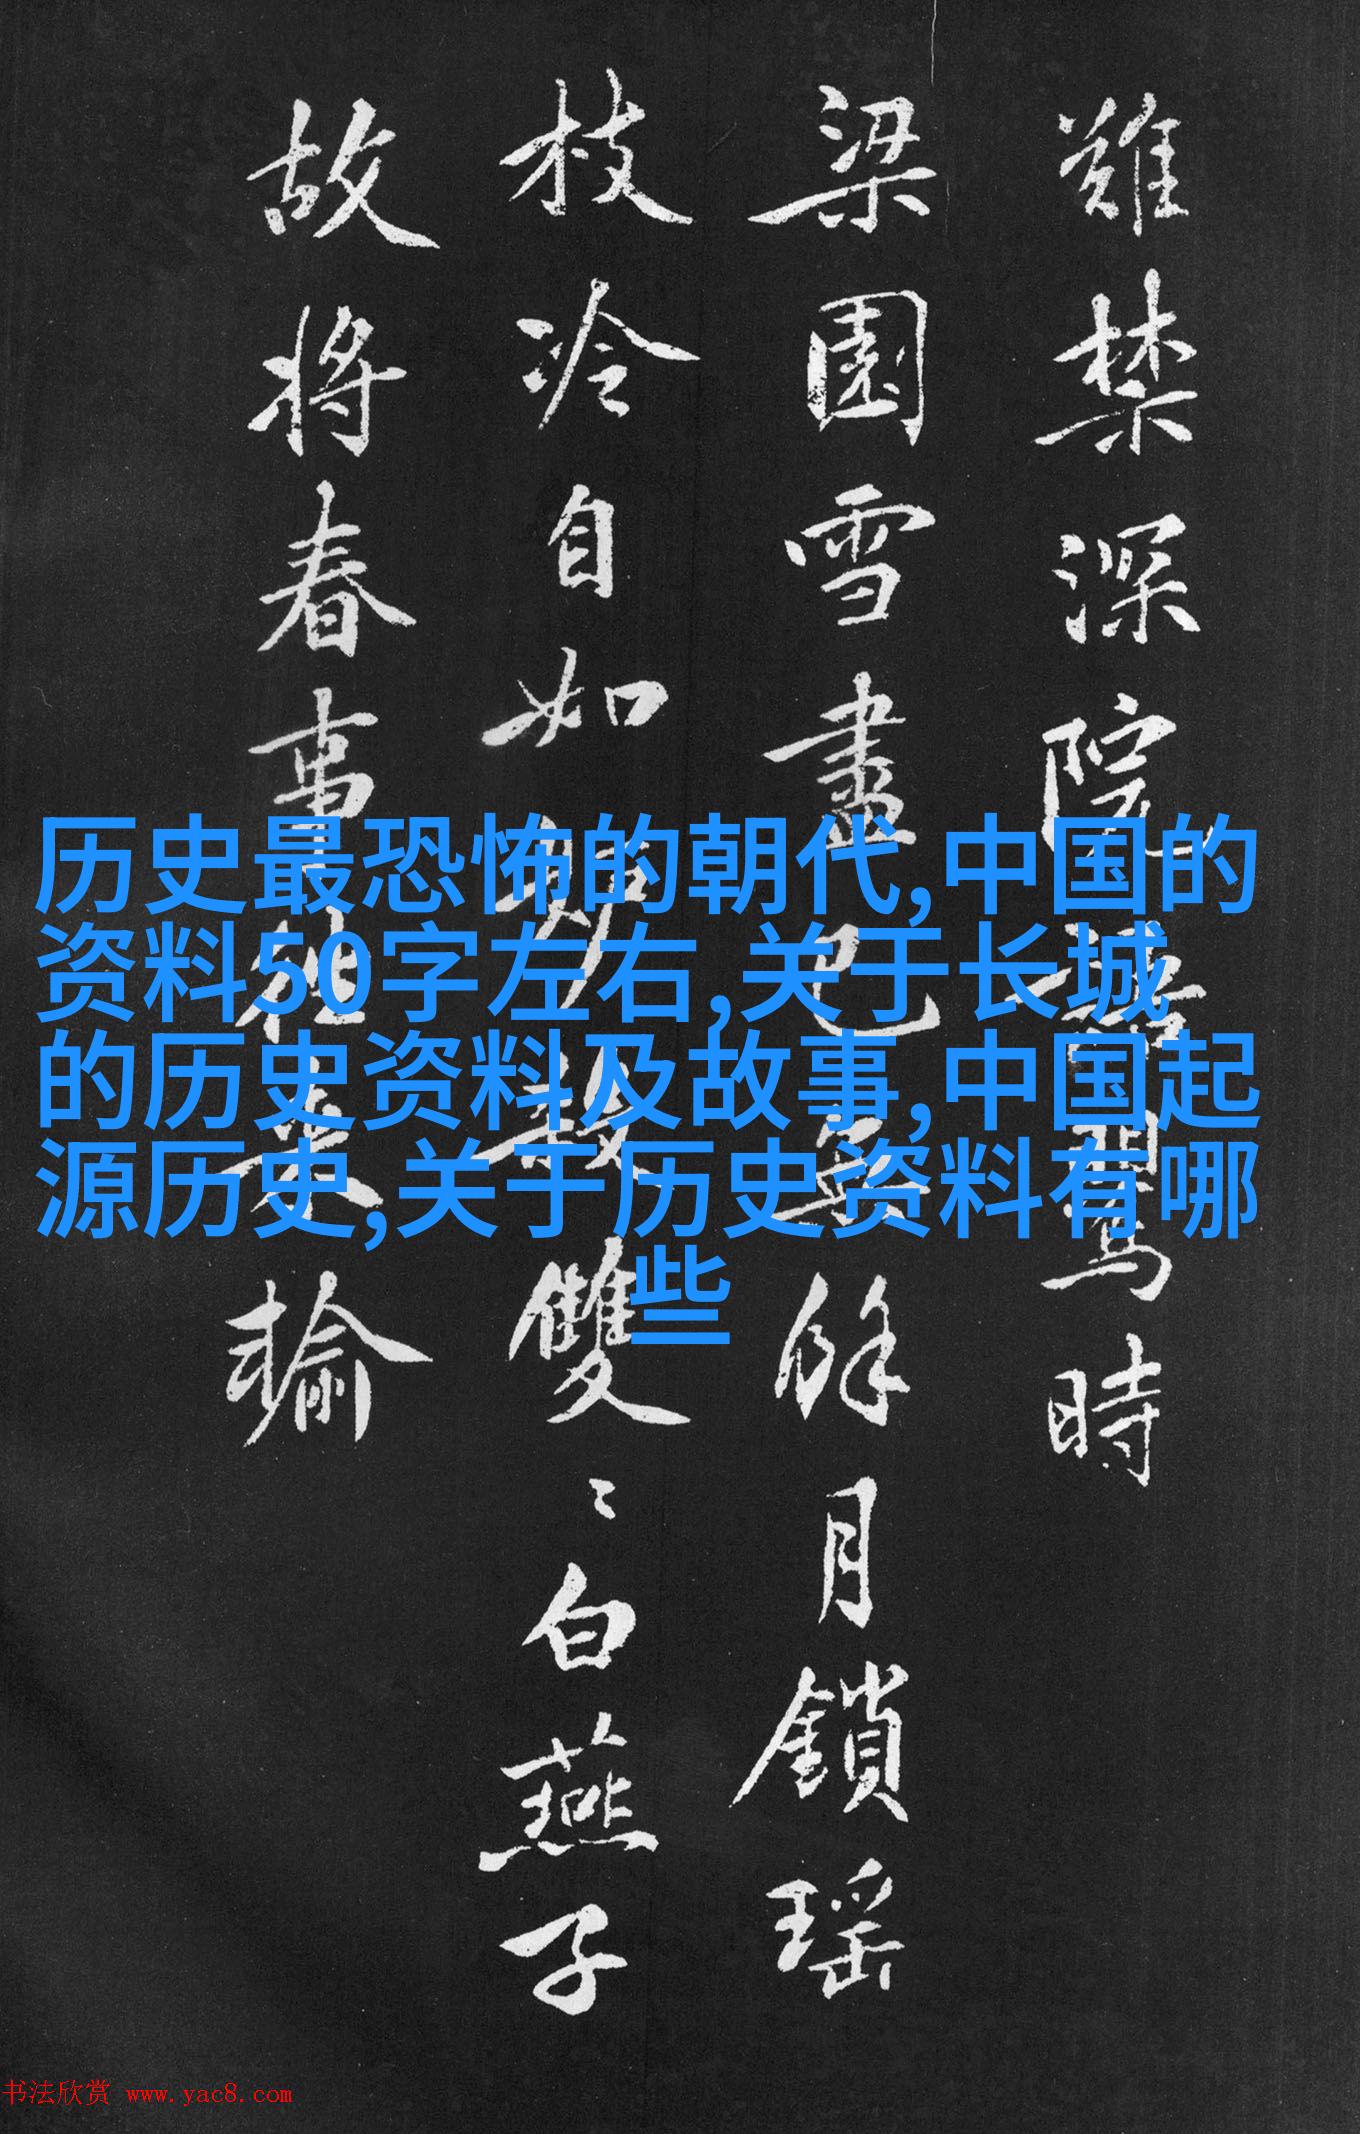 難禁深院鶯時
梁園雪盡已無餘月鎖瑤
枝冷自如數雙〻白燕子
故將春事來輸
历史最恐怖的朝代,中国的
资料50字左右,关于长城
的历史资料及故事,中国起
源历史,关于历史资料有哪
些
书法欣赏 www.yac8.com